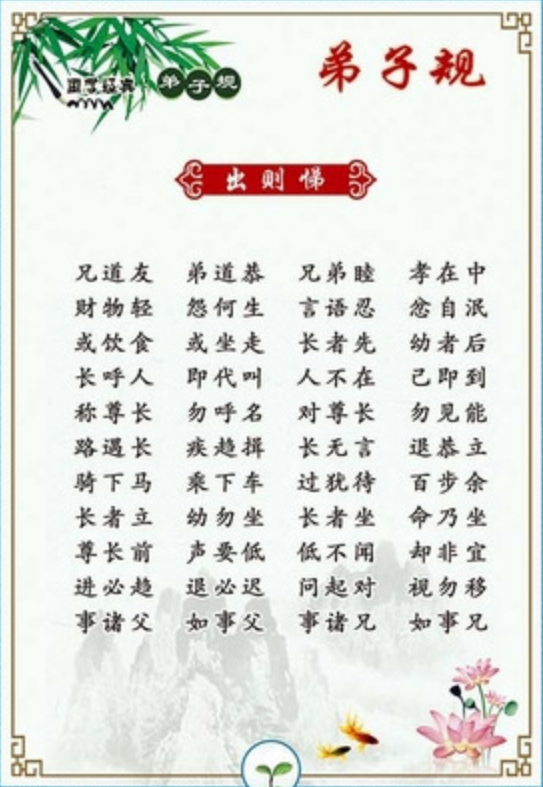 国学经典 弟子规
弟子规
出则悌
兄道友 弟道恭 兄弟睦 孝在中
财物轻 怨何生 言语忍 忿自泯
或饮食 或坐走 长者先 幼者后
长呼人 即代叫 人不在 己即到
称尊长 勿呼名 对尊长 勿见能
路遇长 疾趋揖 长无言 退恭立
骑下马 乘下车 过犹待 百步余
长者立 幼勿坐 长者坐 命乃坐
尊长前 声要低 低不闻 却非宜
进必趋 退必迟 问起对 视勿移
事诸父 如事父 事诸兄 如事兄